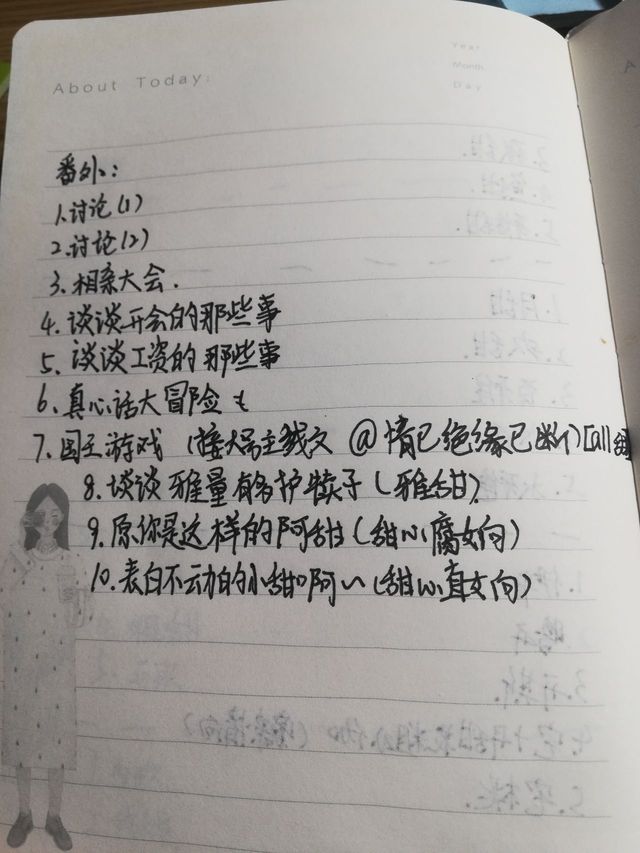 About Today:
Year
Month
Day
番外:
1.讨论(1)
2.讨论(2)
3.相亲大会.
4.谈谈开会的那些事
5.谈谈工资的那些事
6.真心话大冒险
7.国王游戏 (接大号主线文 @情已绝缘已断)[all甜
8.谈谈雅量有多护犊子(雅甜)
9.原你是这样的阿甜(甜心腐女向)
10.表白不云力白的小甜心啊(甜心直女向)